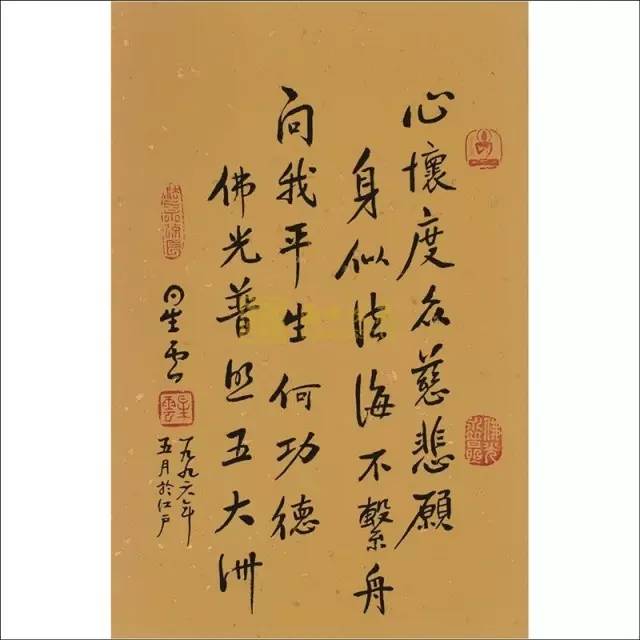 心懷度众慈悲願
身似法海不繫舟
问我平生何功德
佛光普照五大洲
星雲
一九九六年
五月於江户
星雲